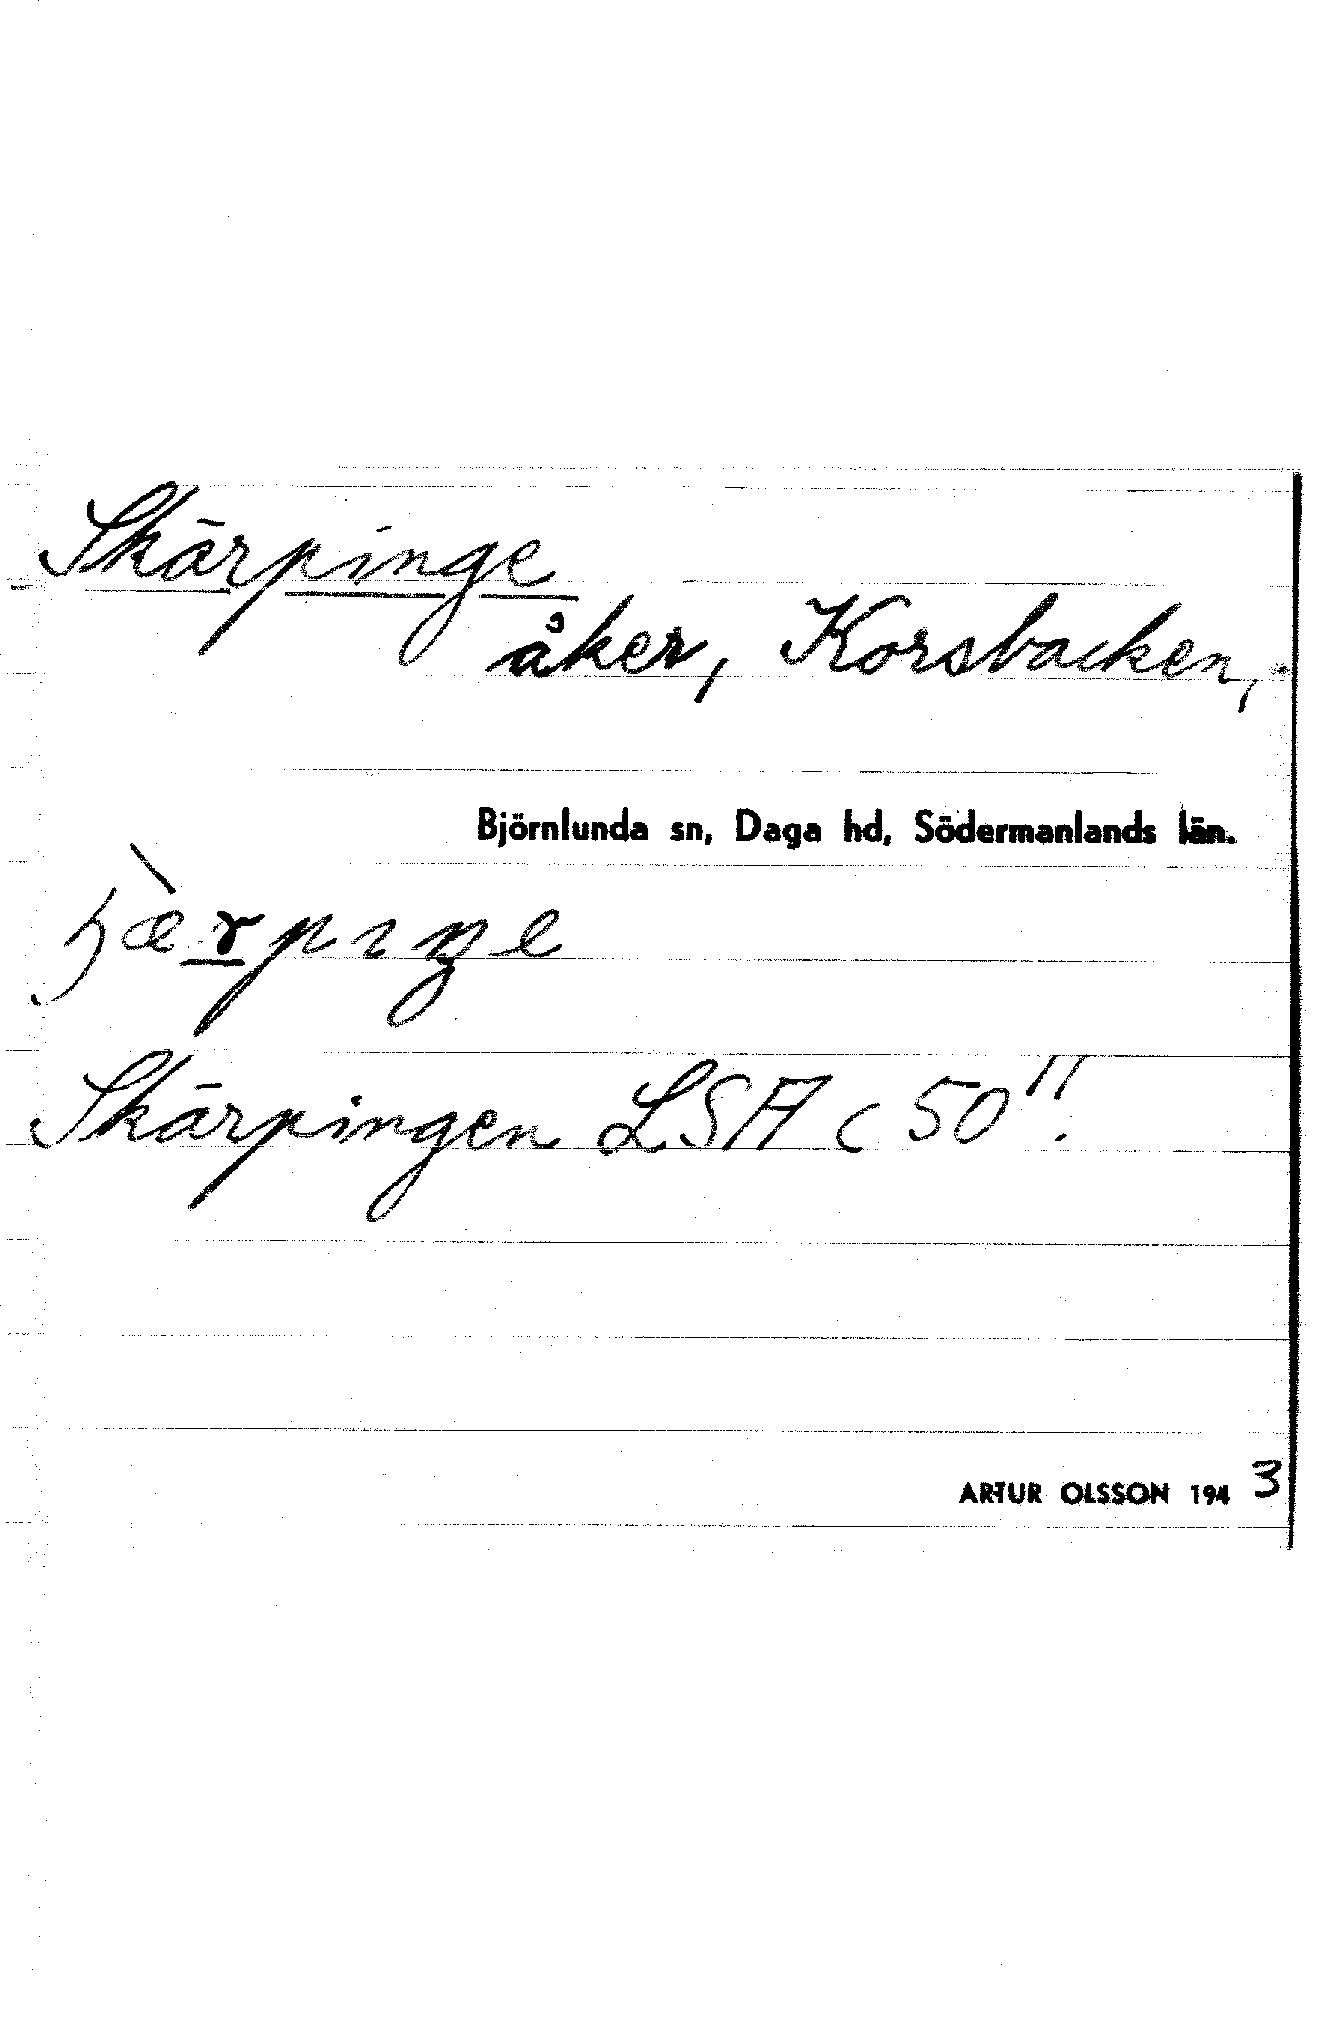 Skärpinge
åker, Korsbacken,
Björnlunda sn, Daga hd, Södermanlands län.
Skärpingen LSA c 50"!
ARTUR OLSSON 1943